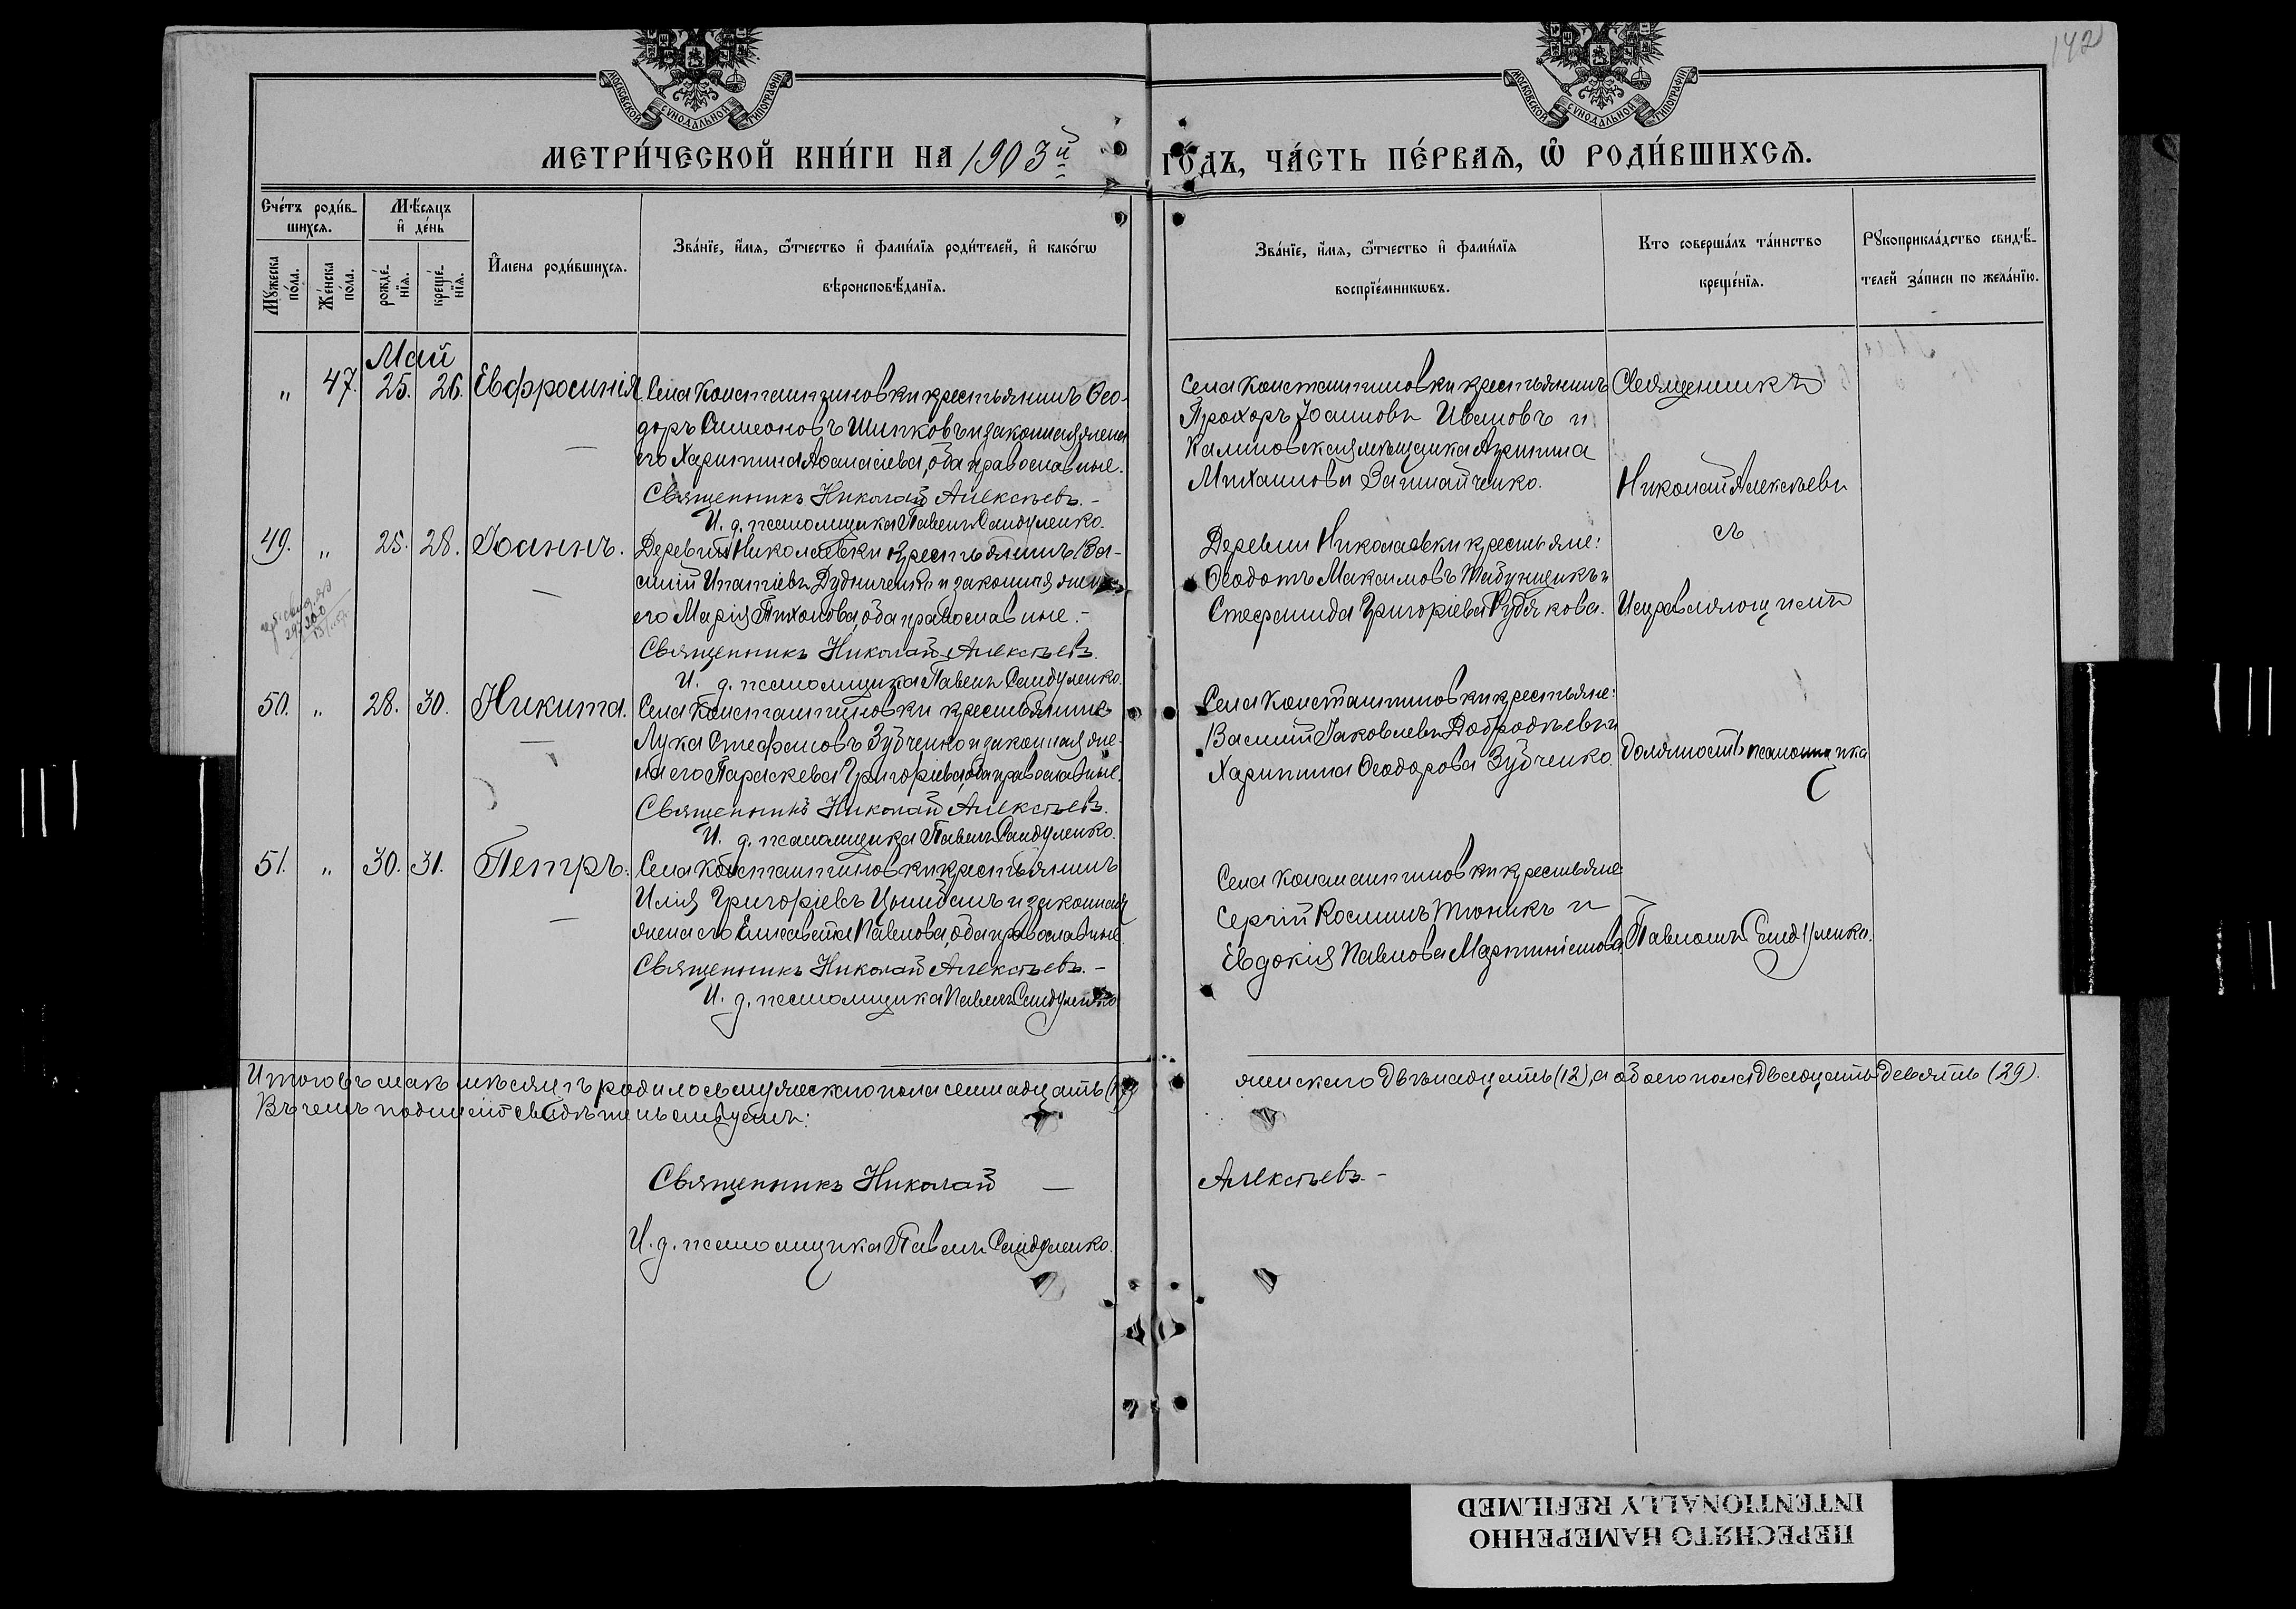 142
МОСКОВСКОЙ СѴНОДАЛЬНОЙ ТИПОГРАФІИ
МОСКОВСКОЙ СѴНОДАЛЬНОЙ ТИПОГРАФІИ
МЕТРИ́ЧЕСКОЙ КНИ́ГИ НА 1903й ГО́ДЪ, ЧА́СТЬ ПЕ́РВАѦ, Ѡ҆ РОДИ́ВШИХСѦ.
Сче́тъ роди́в-
шихсѧ.
Мꙋ́жеска по́ла.
Же́нска по́ла.
Мѣ́сѧцъ
и҆ де́нь
рожде́-
нїѧ.
креще́-
нїѧ.
И҆мена роди́вшихсѧ.
Зва́нїе, и҆́мѧ, ѻ҆́тчество и҆ фами́лїѧ роди́телей, и҆ како́гѡ
вѣроисповѣ́данїѧ.
Зва́нїе, и҆́мѧ, ѻ҆́тчество и҆ фами́лїѧ
воспрїе́мникѡвъ.
Кто соверша́лъ та́инство
креще́нїѧ.
Рꙋкоприкла́дство свидѣ́-
телей за́писи по жела́нїю.
Май
" 47. 25. 26. Евфросинія
Села Константиновки крестьянинъ Ѳео-
доръ Симеоновъ Шипковъ и законная жена
его Харитина Аѳанасіева, оба православные.
Священникъ Николай Алексѣевъ.-
И. д. псаломщика Павелъ Сандуленко.
Села Константиновки крестьянинъ
Прохоръ Іоанновъ Ивановъ и
мѣщанка
Михайлова
Священникъ
Николай Алексѣевъ
съ
49. " 25. 28. Іоаннъ.
Деревни Николаевки крестьянинъ Ва-
силій Ипатіевъ и законная жена
его Марія Тихонова, оба православные.-
Священникъ Николай Алексѣевъ.
И. д. псаломщика Павелъ Сандуленко.
Деревни Николаевки крестьяне:
Ѳеодотъ Максимовъ Табунщикъ и
Стефанида Григоріева Рудякова.
Исправляющимъ
50. " 28. 30. Никита.
Села Константиновки крестьянинъ
Лука Стефановъ Зубченко и законная же-
на его Параскева Григоріева, оба православные.
Священникъ Николай Алексѣевъ.
И. д. псаломщика Павелъ Сандуленко.
Села Константиновки крестьяне:
Василій Іаковлевъ Добродѣевъ и
Харитина Ѳеодорова Зубченко.
должность псаломщика
51. " 30. 31. Петръ.
Села Константиновки крестьянинъ
Илія Григоріевъ и законная
жена его Елисавета Павлова, оба православные.
Священникъ Николай Алексѣевъ.-
И. д. псаломщика Павелъ Сандуленко
Села Константиновки крестьяне
Сергій Косминъ Тюникъ и
Евдокія Павлова
Павломъ Сандуленко.
Итого въ маѣ мѣсяцѣ родилось мужескаго пола семнадцать (17)
женскаго двѣнадцать (12), а обоего пола двадцать девять (29).
Въ чемъ подписомъ свидѣтельствуемъ:
Священникъ Николай — Алексѣевъ.-
И. д. псаломщика Павелъ Сандуленко.
ПЕРЕСНЯТО НАМЕРЕННО
INTENTIONALLY REFILMED